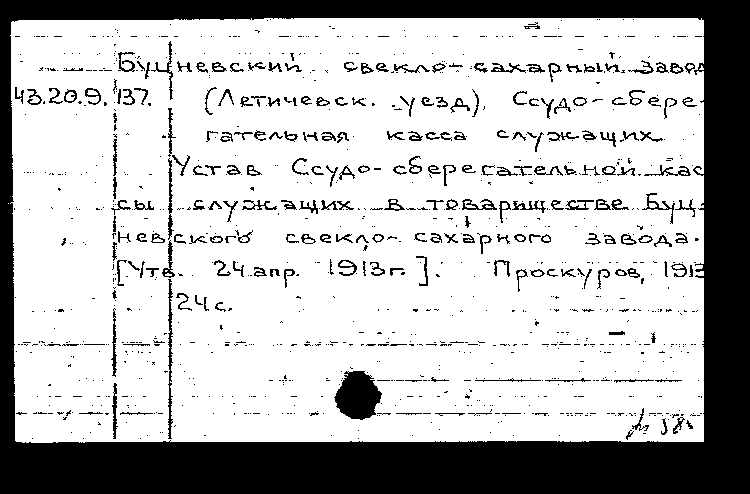 Буцневский свекло-сахарный завод
43.20.9.137. (Летичевск. уезд). Ссудо-сбере-
гательная касса служащих
Устав Ссудо-сберегательной кас
сы служащих в товариществе Буц-
невского свекло-сахарного завода.
[Утв. 24 апр. 1913 г.]. Проскуров, 1913
24 с.